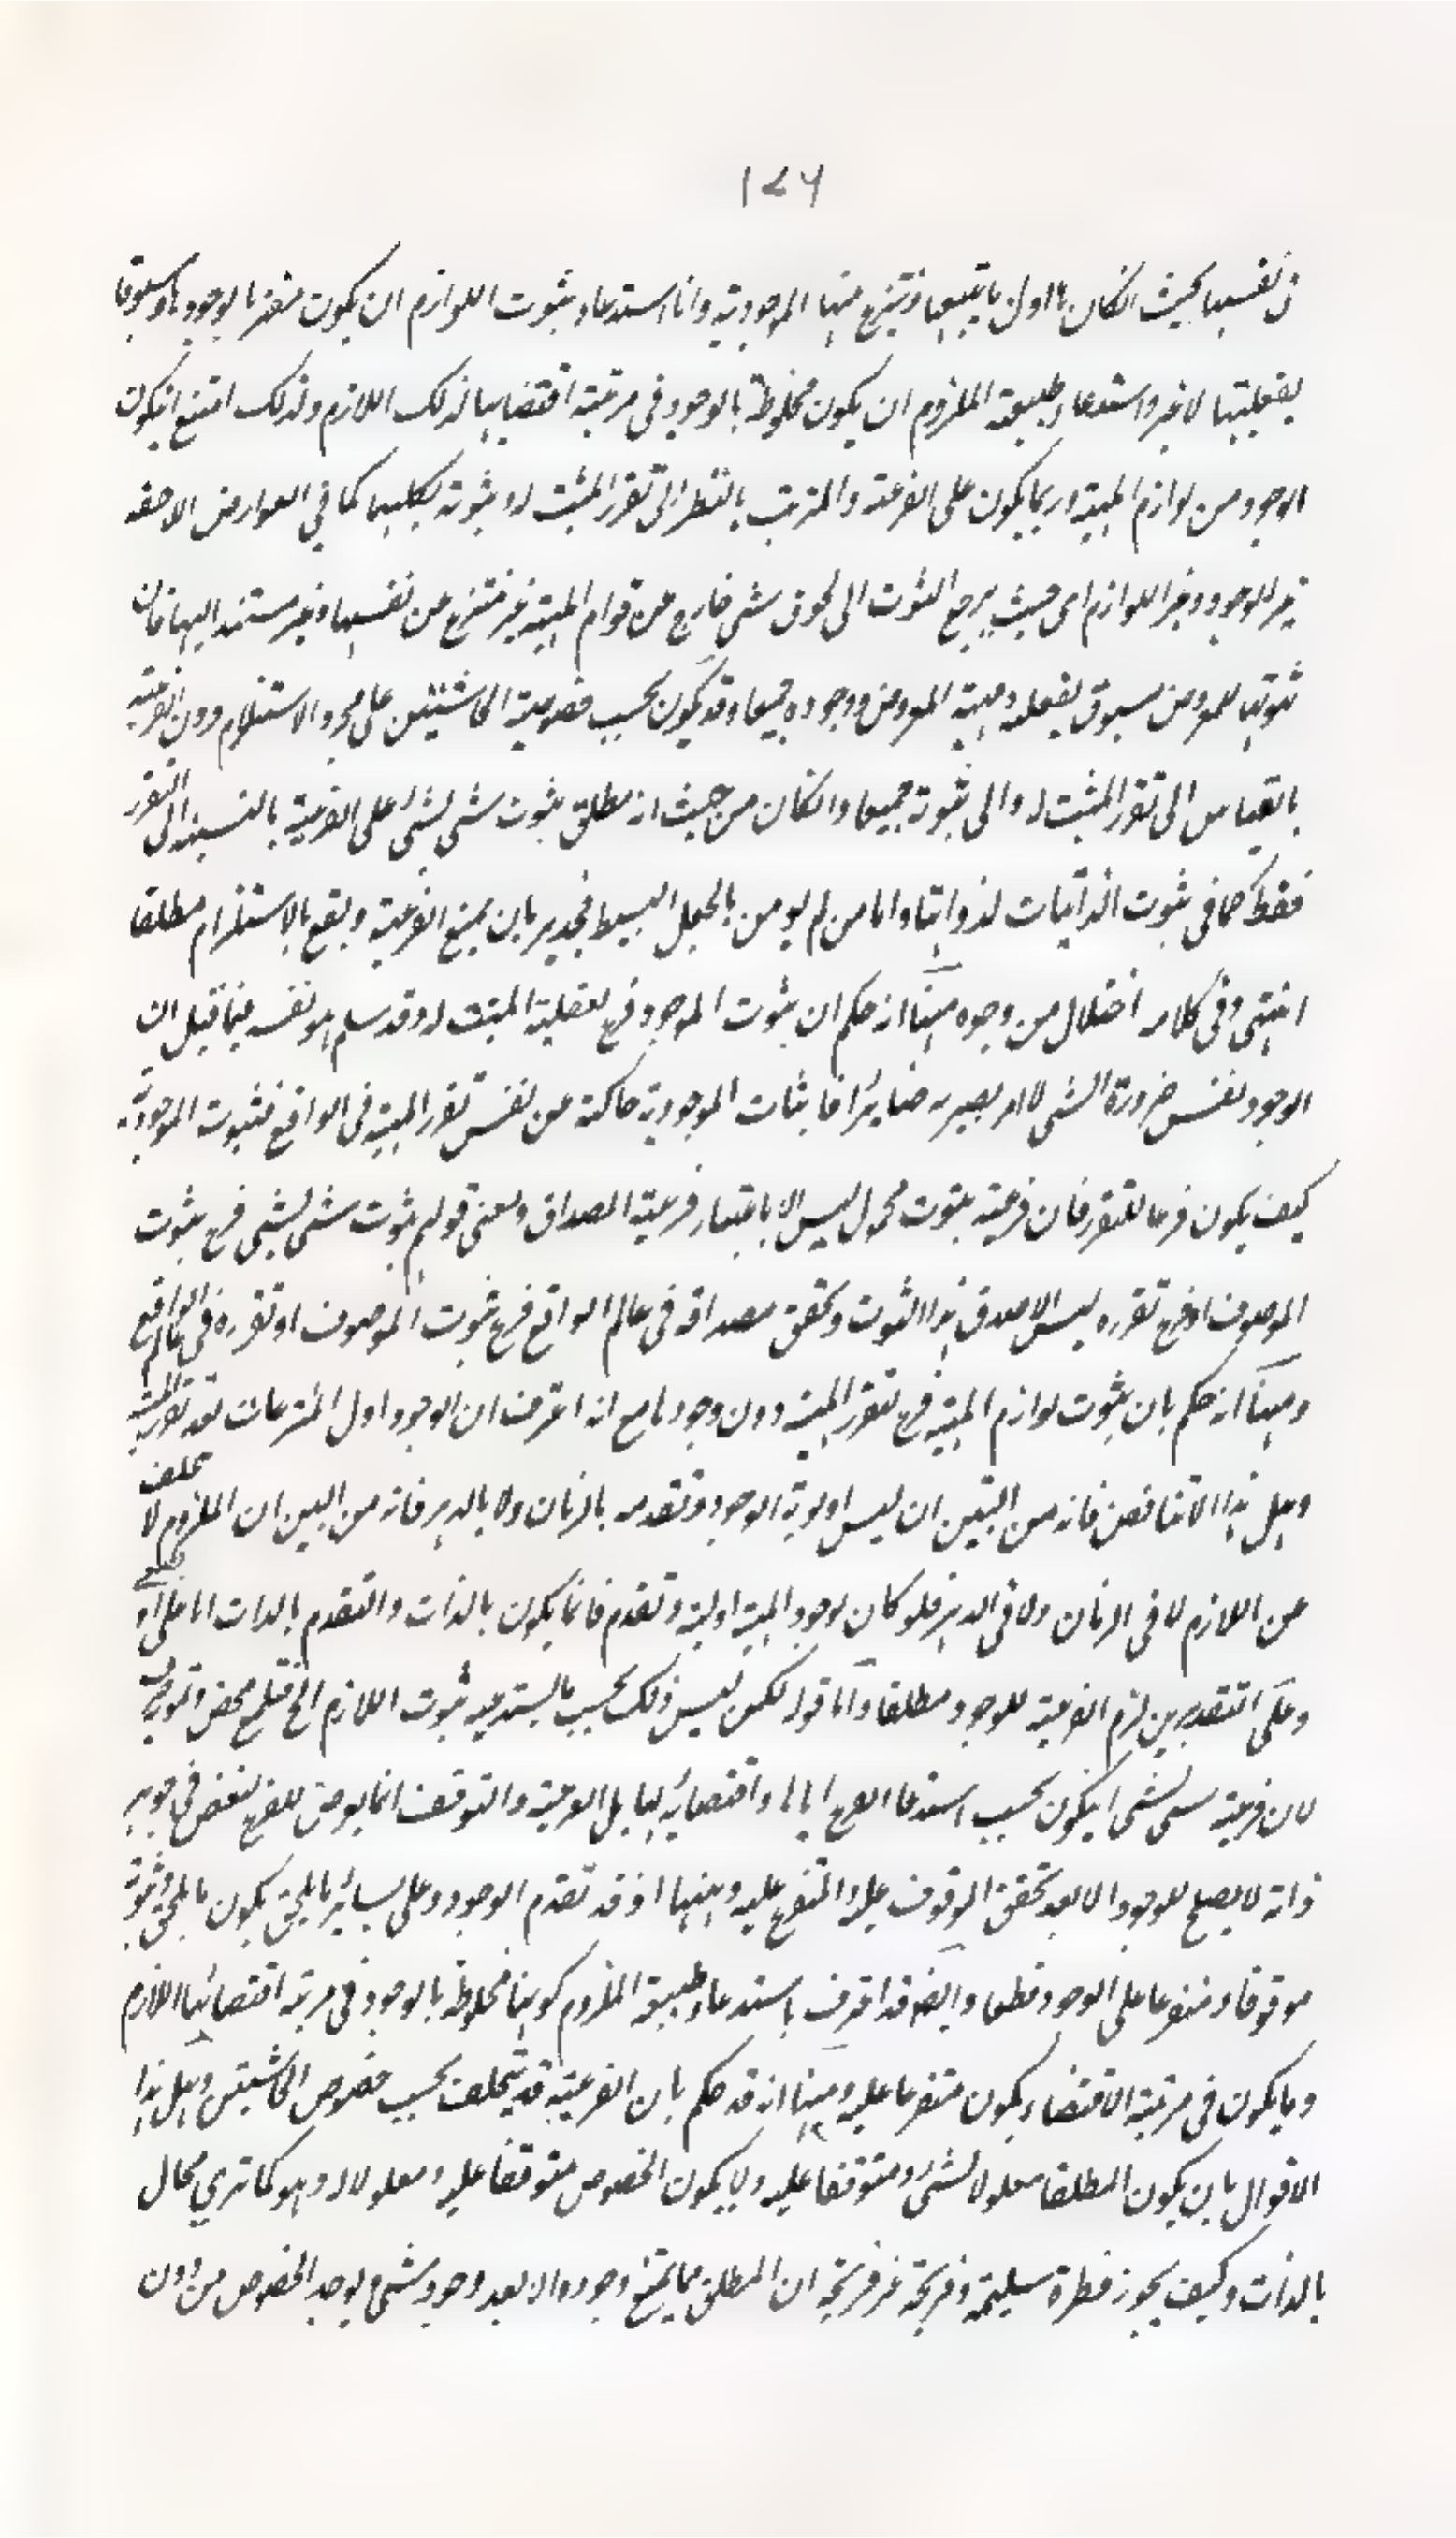 ١٤٦
فى نفسها بحيث انكان ما اول ما يتبعها وينتزع منها الموجودية وانا استدعاء ثبوت اللوازم ان يكون مقترنا بالوجود او مسبوقا
بفعليتها لا غير واستدعاء طبيعة الملزوم ان يكون مخلوطة بالوجود فى مرتبة اقتضايها لذلك اللازم ولذلك امتنع انيكون
الوجود من لوازم المهية وربما يكون على الفرعية والترتب بالنظر الى تقرر المثبت له وثبوته كليهما كما فى العوارض اللاحقة
غير الوجود وغير اللوازم اى حيث يرجع الثبوت الى لحوق شى خارج عن قوام المهية غير منتزع عن نفسها وغير مستند اليها فان
ثبوتها للمعروض مسبوق بفعلية مهية المعروض ووجوده جميعا وقد يكون بحسب خصوصية الحاشيتين على مجرد الاستلزام دون الفرعية
بالقياس الى تقرر المثبت له والى ثبوته جميعا وانكان من حيث انه مطلق ثبوت شى لشى على الفرعية بالنسبة الى التقرر
فقط كما فى ثبوت الذاتيات لذواتها واما من لم يومن بالجعل البسيط فجدير بان يمنع الفرعية ويقنع بالاستلزام مطلقا
انتهى وفى كلامه اختلال من وجوه منها انه حكم ان ثبوت الموجود فرع لفعلية المثبت له وقد سلم هو نفسه فيما قبل ان
الوجود نفس ضرورة الشى لا امر يصير به ضايرا فاثبات الموجودية حاكية عن نفس تقرر المهية فى الواقع فثبوت الموجودية
كيف يكون فرعا للتقرر فان فرعية ثبوت محمول ليس الا باعتبار فرعية المصداق ومعنى قولهم ثبوت شى لشى فرع ثبوت
الموصوف او فرع تقرره ليس الا صدق هذا الثبوت وتحقق مصداقه فى عالم الواقع فرع ثبوت الموصوف او تقرره فى عالم الواقع
ومنها انه حكم بان ثبوت لوازم المهية فرع تقرر المهية دون وجودها مع انه اعترف ان الوجود اول المنتزعات بعد تقرر المهية
وهل هذا الا تناقض فانه من البين ان ليس اولية الوجود وتقدمه بالزمان ولا بالدهر فانه من البين ان الملزوم لا يتخلف
عن اللازم لا فى الزمان ولا فى الدهر فلو كان لوجود المهية اولية وتقدم فانما يكون بالذات والتقدم بالذات اما على او
وعلى التقديرين لزم الفرعية للوجود مطلقا واما قوله لكن ليس ذلك بحسب ما يستدعيه ثبوت اللازم الخ محض
لان فرعية شى لشى لا يكون بحسب استدعا الفرع اياها واقتضائه لها بل الفرعية والتوقف انما يعرض للفرع لنقص فى جوهر
ذاته لا يصلح للوجود الا بعد تحقق الموقوف عليه والمتفرع عليه وههنا اذ قد تقدم الوجود وعلى سائر ما يلحق يكون ما يلحق وثبوته
موقوفا ومتفرعا على الوجود قطعا وايضا قد اعترف باستدعاء طبيعة الملزوم كونها مخلوطة بالوجود فى مرتبة اقتضائها اللازم
وما يكون فى مرتبة الاقتضاء يكون متفرعا عليه ومنها انه قد حكم بان الفرعية قد يتخلف بحسب خصوص الحاشيتين وهل هذا
الا قوال بان يكون المطلق معلولا لشئ ومتوقفا عليه ولا يكون الخصوص متوقفا عليه ومعلولا له وهو كما ترى محال
بالذات وكيف يجوز فطرة سليمة وقريحة غير قريحة ان المطلق مما يمتنع وجوده الا بعد وجود شى ويوجد الخصوص من دون